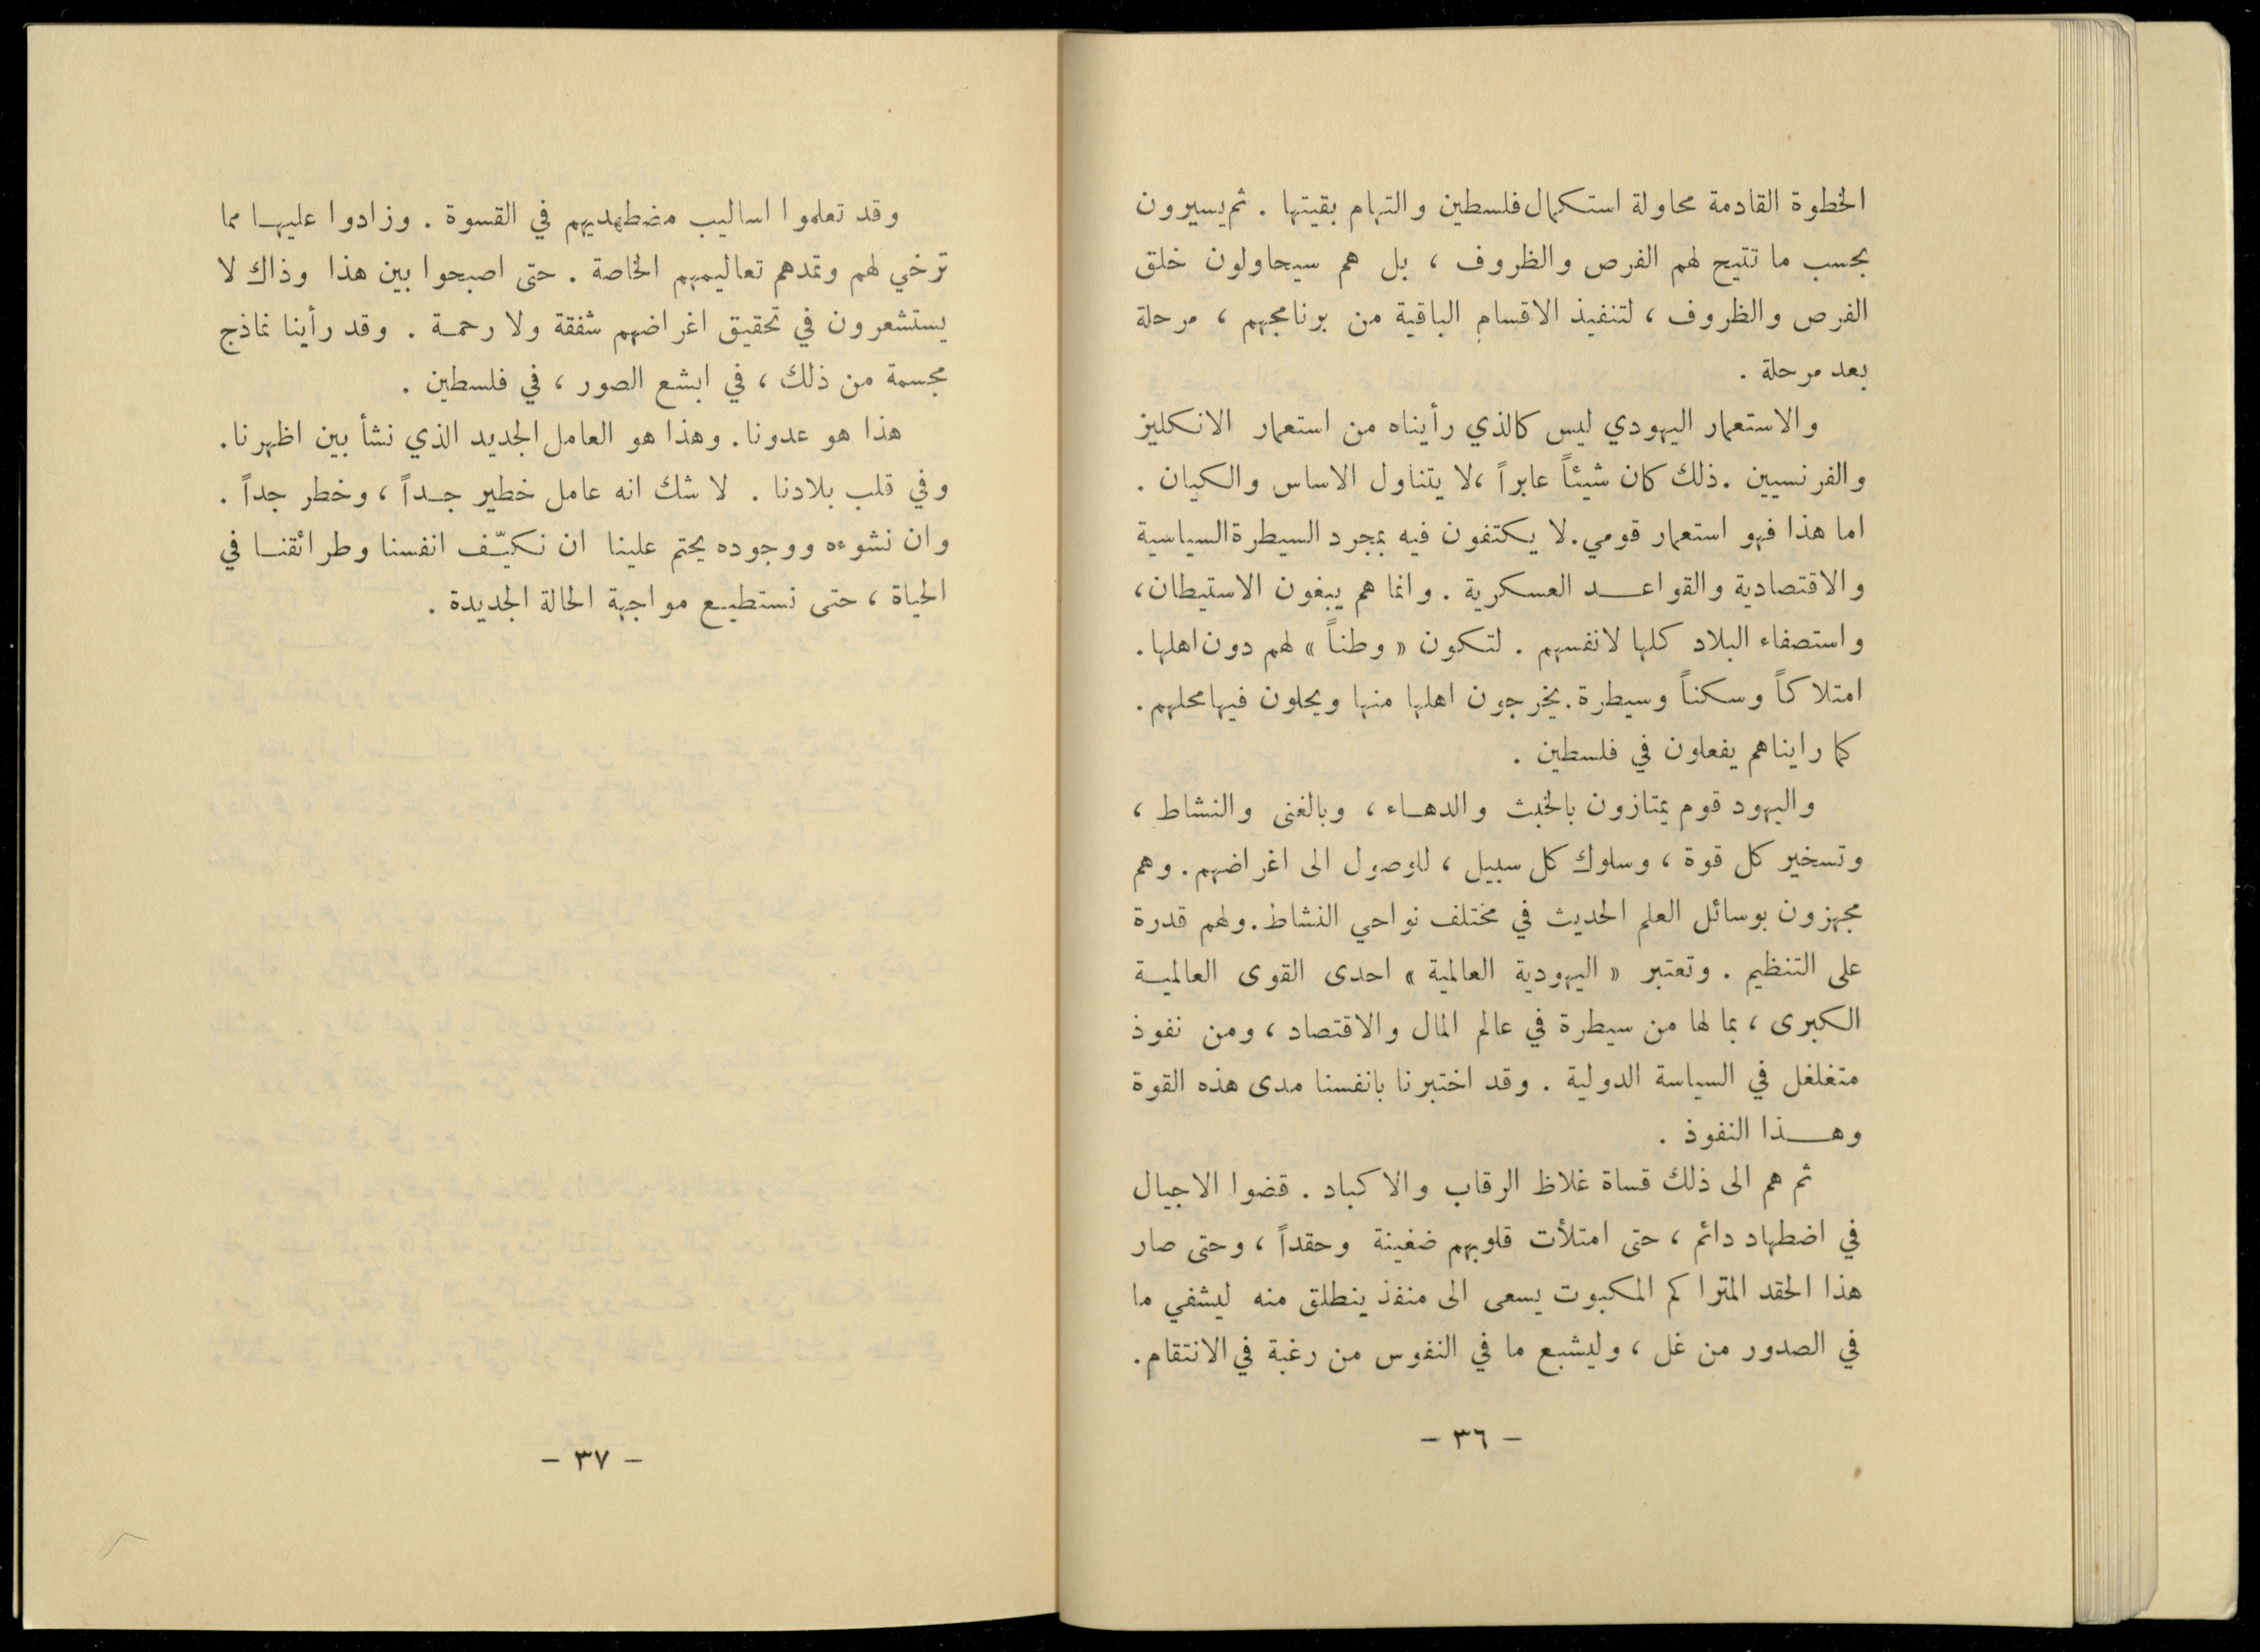 الخطوة القادمة محاولة استكمال فلسطين والتهام بقيتها . ثم يسيرون
بحسب ما تتيح لهم الفرص والظروف ، بل هم سيحاولون خلق
الفرص والظروف ، لتنفيذ الاقسام الباقية من برنامجهم ، مرحلة
بعد مرحلة .
والاستعمار اليهودي ليس كالذي رأيناه من استعمار الانكليز
والفرنسيين . ذلك كان شيئاً عابراً ، لا يتناول الاساس والكيان .
اما هذا فهو استعمار قومي . لا يكتفون فيه بمجرد السيطرة السياسية
والاقتصادية والقواعد العسكرية . وانما هم يبغون الاستيطان ،
واستصفاء البلاد كلها لانفسهم . لتكون « وطناً » لهم دون اهلها .
امتلاكاً وسكناً وسيطرة . يخرجون اهلها منها ويحلون فيها محلهم .
كما رايناهم يفعلون في فلسطين .
واليهود قوم يمتازون بالخبث والدهاء ، وبالغنى والنشاط ،
وتسخير كل قوة ، وسلوك كل سبيل ، للوصول الى اغراضهم . وهم
مجهزون بوسائل العلم الحديث في مختلف نواحي النشاط . ولهم قدرة
على التنظيم . وتعتبر « اليهودية العالمية » احدى القوى العالمية
الكبرى ، بما لها من سيطرة في عالم المال والاقتصاد ، ومن نفوذ
متغلغل في السياسة الدولية . وقد اختبرنا بانفسنا مدى هذه القوة
وهذا النفوذ .
ثم هم الى ذلك قساة غلاظ الرقاب والاكباد . قضوا الاجيال
في اضطهاد دائم ، حتى امتلأت قلوبهم ضغينة وحقداً ، وحتى صار
هذا الحقد المتراكم المكبوت يسعى الى منفذ ينطلق منه ليشفي ما
في الصدور من غل ، وليشبع ما في النفوس من رغبة في الانتقام .
- ٣٦ -
وقد تعلموا اساليب مضطهديهم في القسوة . وزادوا عليها مما
ترخي لهم وتمدهم تعاليمهم الخاصة . حتى اصبحوا بين هذا وذاك لا
يستشعرون في تحقيق اغراضهم شفقة ولا رحمة . وقد رأينا نماذج
مجسمة من ذلك ، في ابشع الصور ، في فلسطين .
هذا هو عدونا . وهذا هو العامل الجديد الذي نشأ بين اظهرنا .
وفي قلب بلادنا . لا شك انه عامل خطير جداً ، وخطر جداً .
وان نشوءه ووجوده يحتم علينا ان نكيّف انفسنا وطرائقنا في
الحياة ، حتى نستطيع مواجهة الحالة الجديدة .
- ٣٧ -